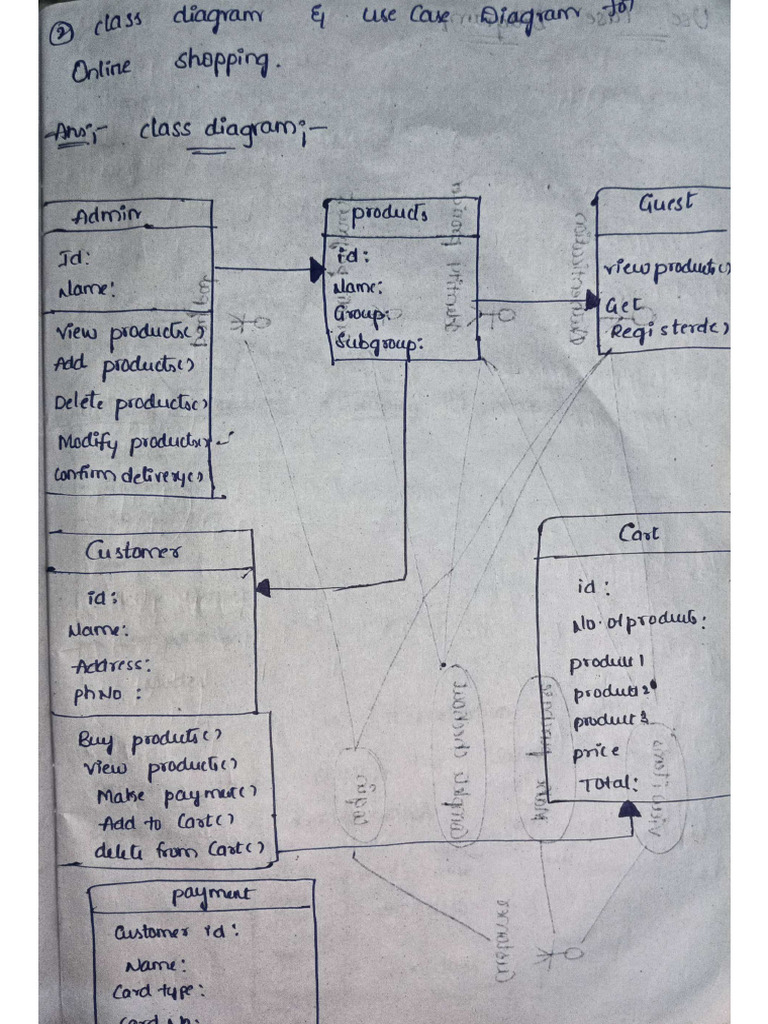 ② class diagram & use Case Diagram for
Online shopping.
Ans:- class diagram:-
Admin
Id:
Name:
View products()
Add products()
Delete products()
Modify products()
Confirm delivery()
products
id:
Name:
Group:
Subgroup:
Guest
view products()
Get
Registerd()
Customer
id:
Name:
Address:
ph No :
Buy products()
View products()
Make payment()
Add to Cart()
delete from Cart()
Cart
id:
No. of products:
product 1
product 2
product 3
price
Total:
payment
Customer id:
Name:
Card type:
Card No: